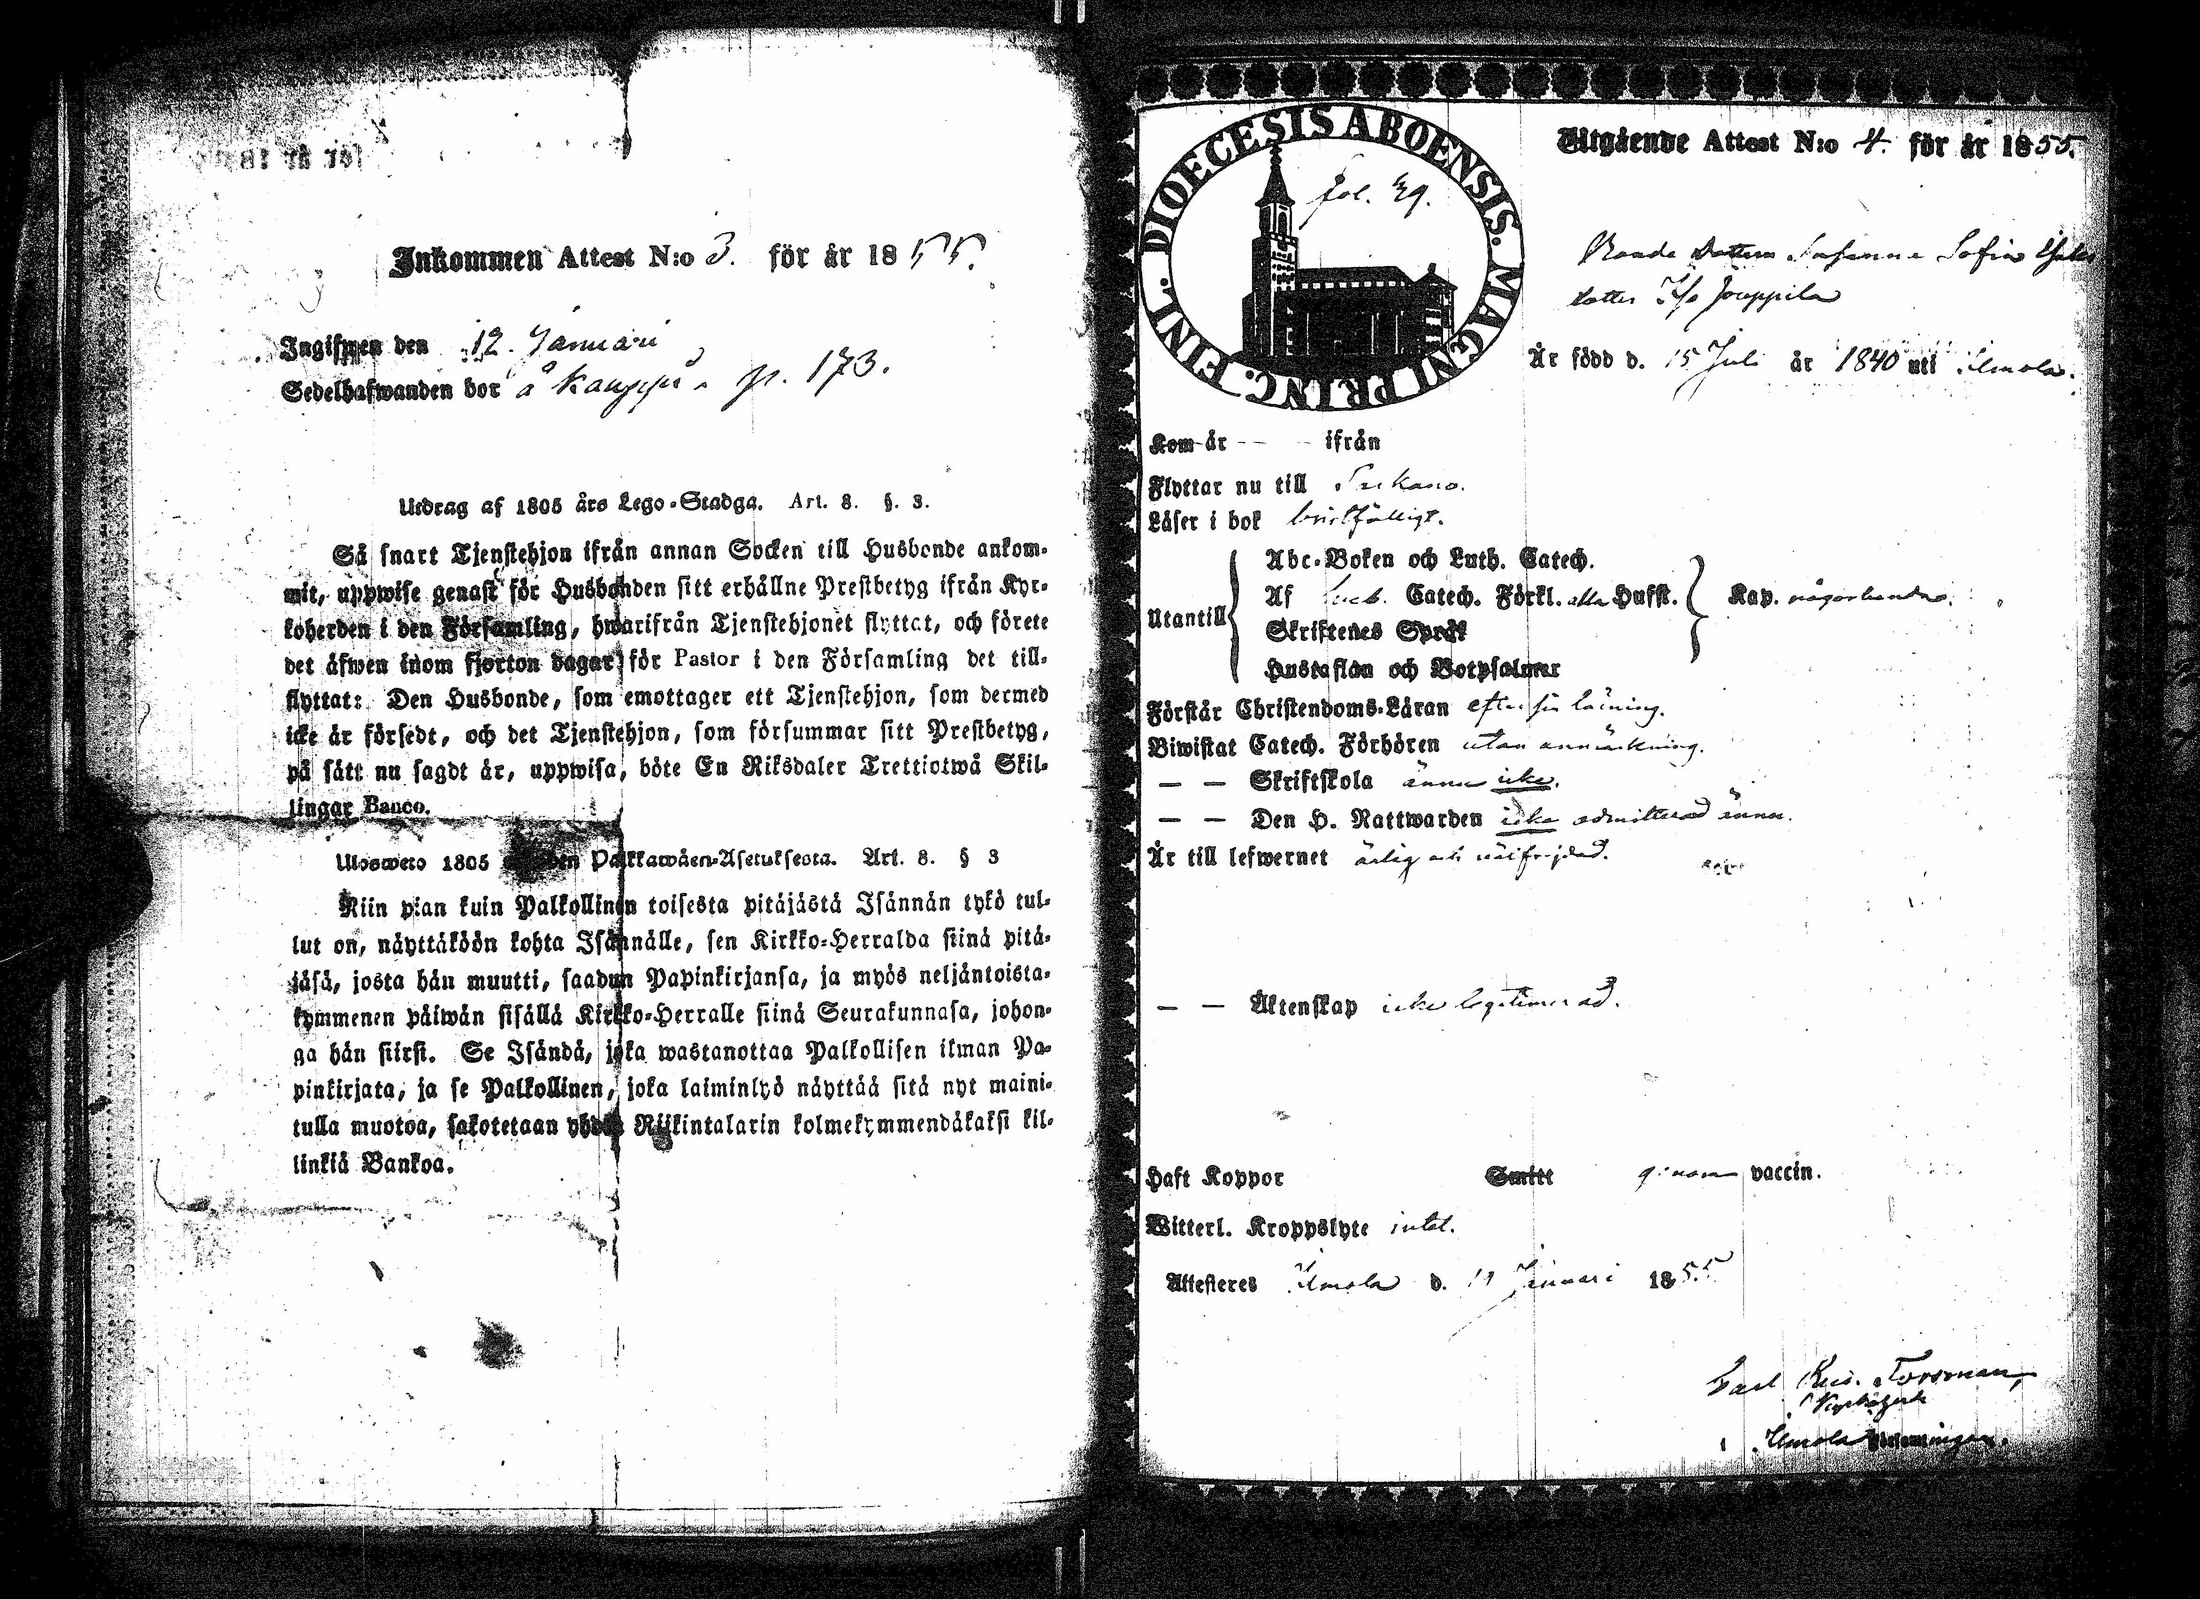 Inkommen Attest N:o 3. för år 1855.
Ingifwen den 12. Januari
Sedelhafwanden bor å Kauppi p. 173.
Utdrag af 1805 års Lego-Stadga. Art. 8. §. 3.
Så snart Tjenstehjon ifrån annan Socken till Husbonde ankom-
mit, uppwise genast för Husbonden sitt erhållne Prestbetyg ifrån Kyr-
koherden i den Församling, hwarifrån Tjenstehjonet flyttat, och förete
det äfwen inom fjorton dagar för Pastor i den Församling det till-
flyttat: Den Husbonde, som emottager ett Tjenstehjon, som dermed
icke är försedt, och det Tjenstehjon, som försummar sitt Prestbetyg,
på sätt nu sagdt är, uppwisa, böte En Riksdaler Trettiotwå Skil-
lingar Banco.
Uloswето 1805 Palkkawäen-Asetuksesta. Art. 8. § 3
Niin pian kuin Palkollinen toisesta pitäjästä Isännän tykö tul-
lut on, näyttäköön kohta Isännälle, sen Kirkko-Herralda siinä pitä-
jäsä, josta hän muutti, saadun Papinkirjansa, ja myös neljäntoista-
kymmenen päiwän sisällä Kirkko-Herralle siinä Seurakunnasa, johon-
ga hän siirsi. Se Isändä, joka wastanottaa Palkollisen ilman Pa-
pinkirjata, ja se Palkollinen, joka laiminlyö näyttää sitä nyt maini-
tulla muotoa, sakotetaan yhden Riikintalarin kolmekymmendäkaksi kil-
linkiä Bankoa.
DIOECESIS ABOENSIS. MAGNI PRINC. FINL.
fol. 49.
Utgående Attest N:o 4. för år 1855.
Bonde Dottern Susanna Sofia
dotter Jouppila
Är född d. 15 Juli år 1840 uti Ilmola.
Kom år — — ifrån
Flyttar nu till
Läser i bok bristfälligt.
Utantill
Abc-Boken och Luth. Catech.
Af Catech. Förkl. alla Hufst. Kap. någorlunda.
Skriftenes Språk
Hustaflan och Botpsalmer
Förstår Christendoms-Läran efter sin läsning.
Biwistat Catech. Förhören utan anmärkning.
— — Skriftskola ännu icke.
— — Den H. Nattwarden icke admitterad ännu.
Är till lefwernet ärlig och wälfrejdad.
— — Äktenskap icke legitimerad.
Haft Koppor Smitt genom vaccin.
Witterl. Kroppslyte intet.
Attesteres Ilmola d. 11 Januari 1855
Carl Forsman,
Kyrkoherde
i Ilmola Församlingen.